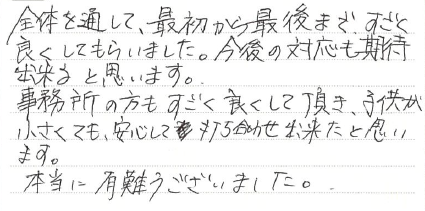 全体を通して、最初から最後まで、すごく
良くしてもらいました。今後の対応も期待
出来ると思います。
事務所の方もすごく良くして頂き、子供が
小さくても、安心して打ち合わせ出来たと思い
ます。
本当に有難うございました。